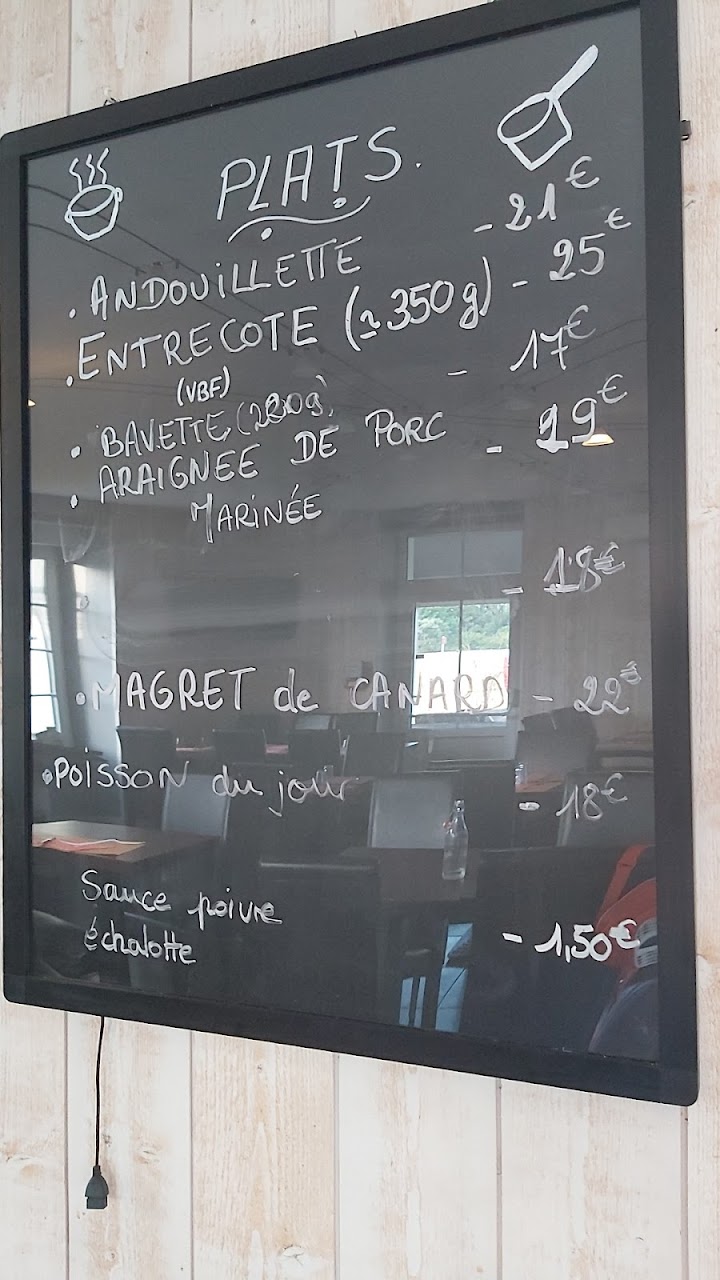 PLATS.
• ANDOUILLETTE - 21€
• ENTRECOTE (± 350g) - 25€
(VBF)
• BAVETTE (280g) - 17€
• ARAIGNEE DE PORC - 19€
MARINÉE
- 18€
• MAGRET de CANARD - 22€
• POISSON du jour - 18€
Sauce poivre
échalotte - 1,50€